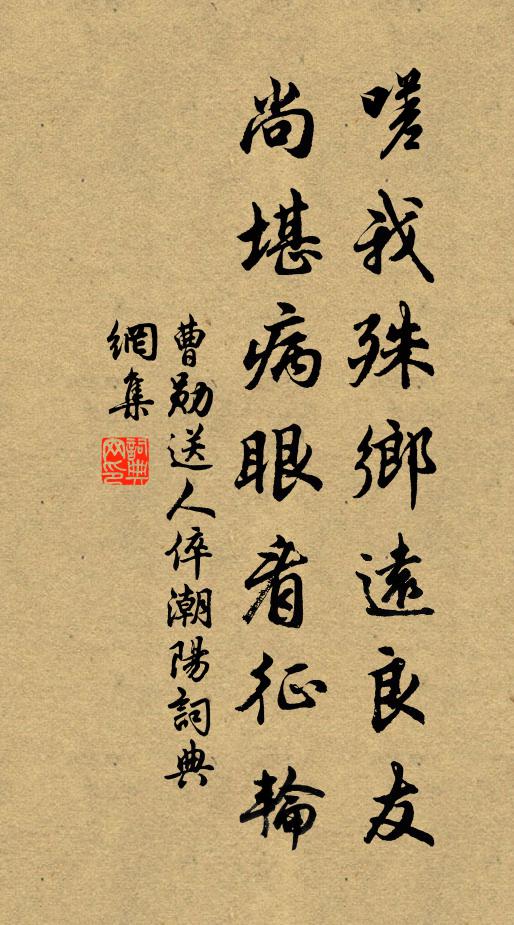 嗟我殊鄉遠良友
尚堪病眼看征輪
曹勛送人倅潮陽詞典
網集
詞典
网印